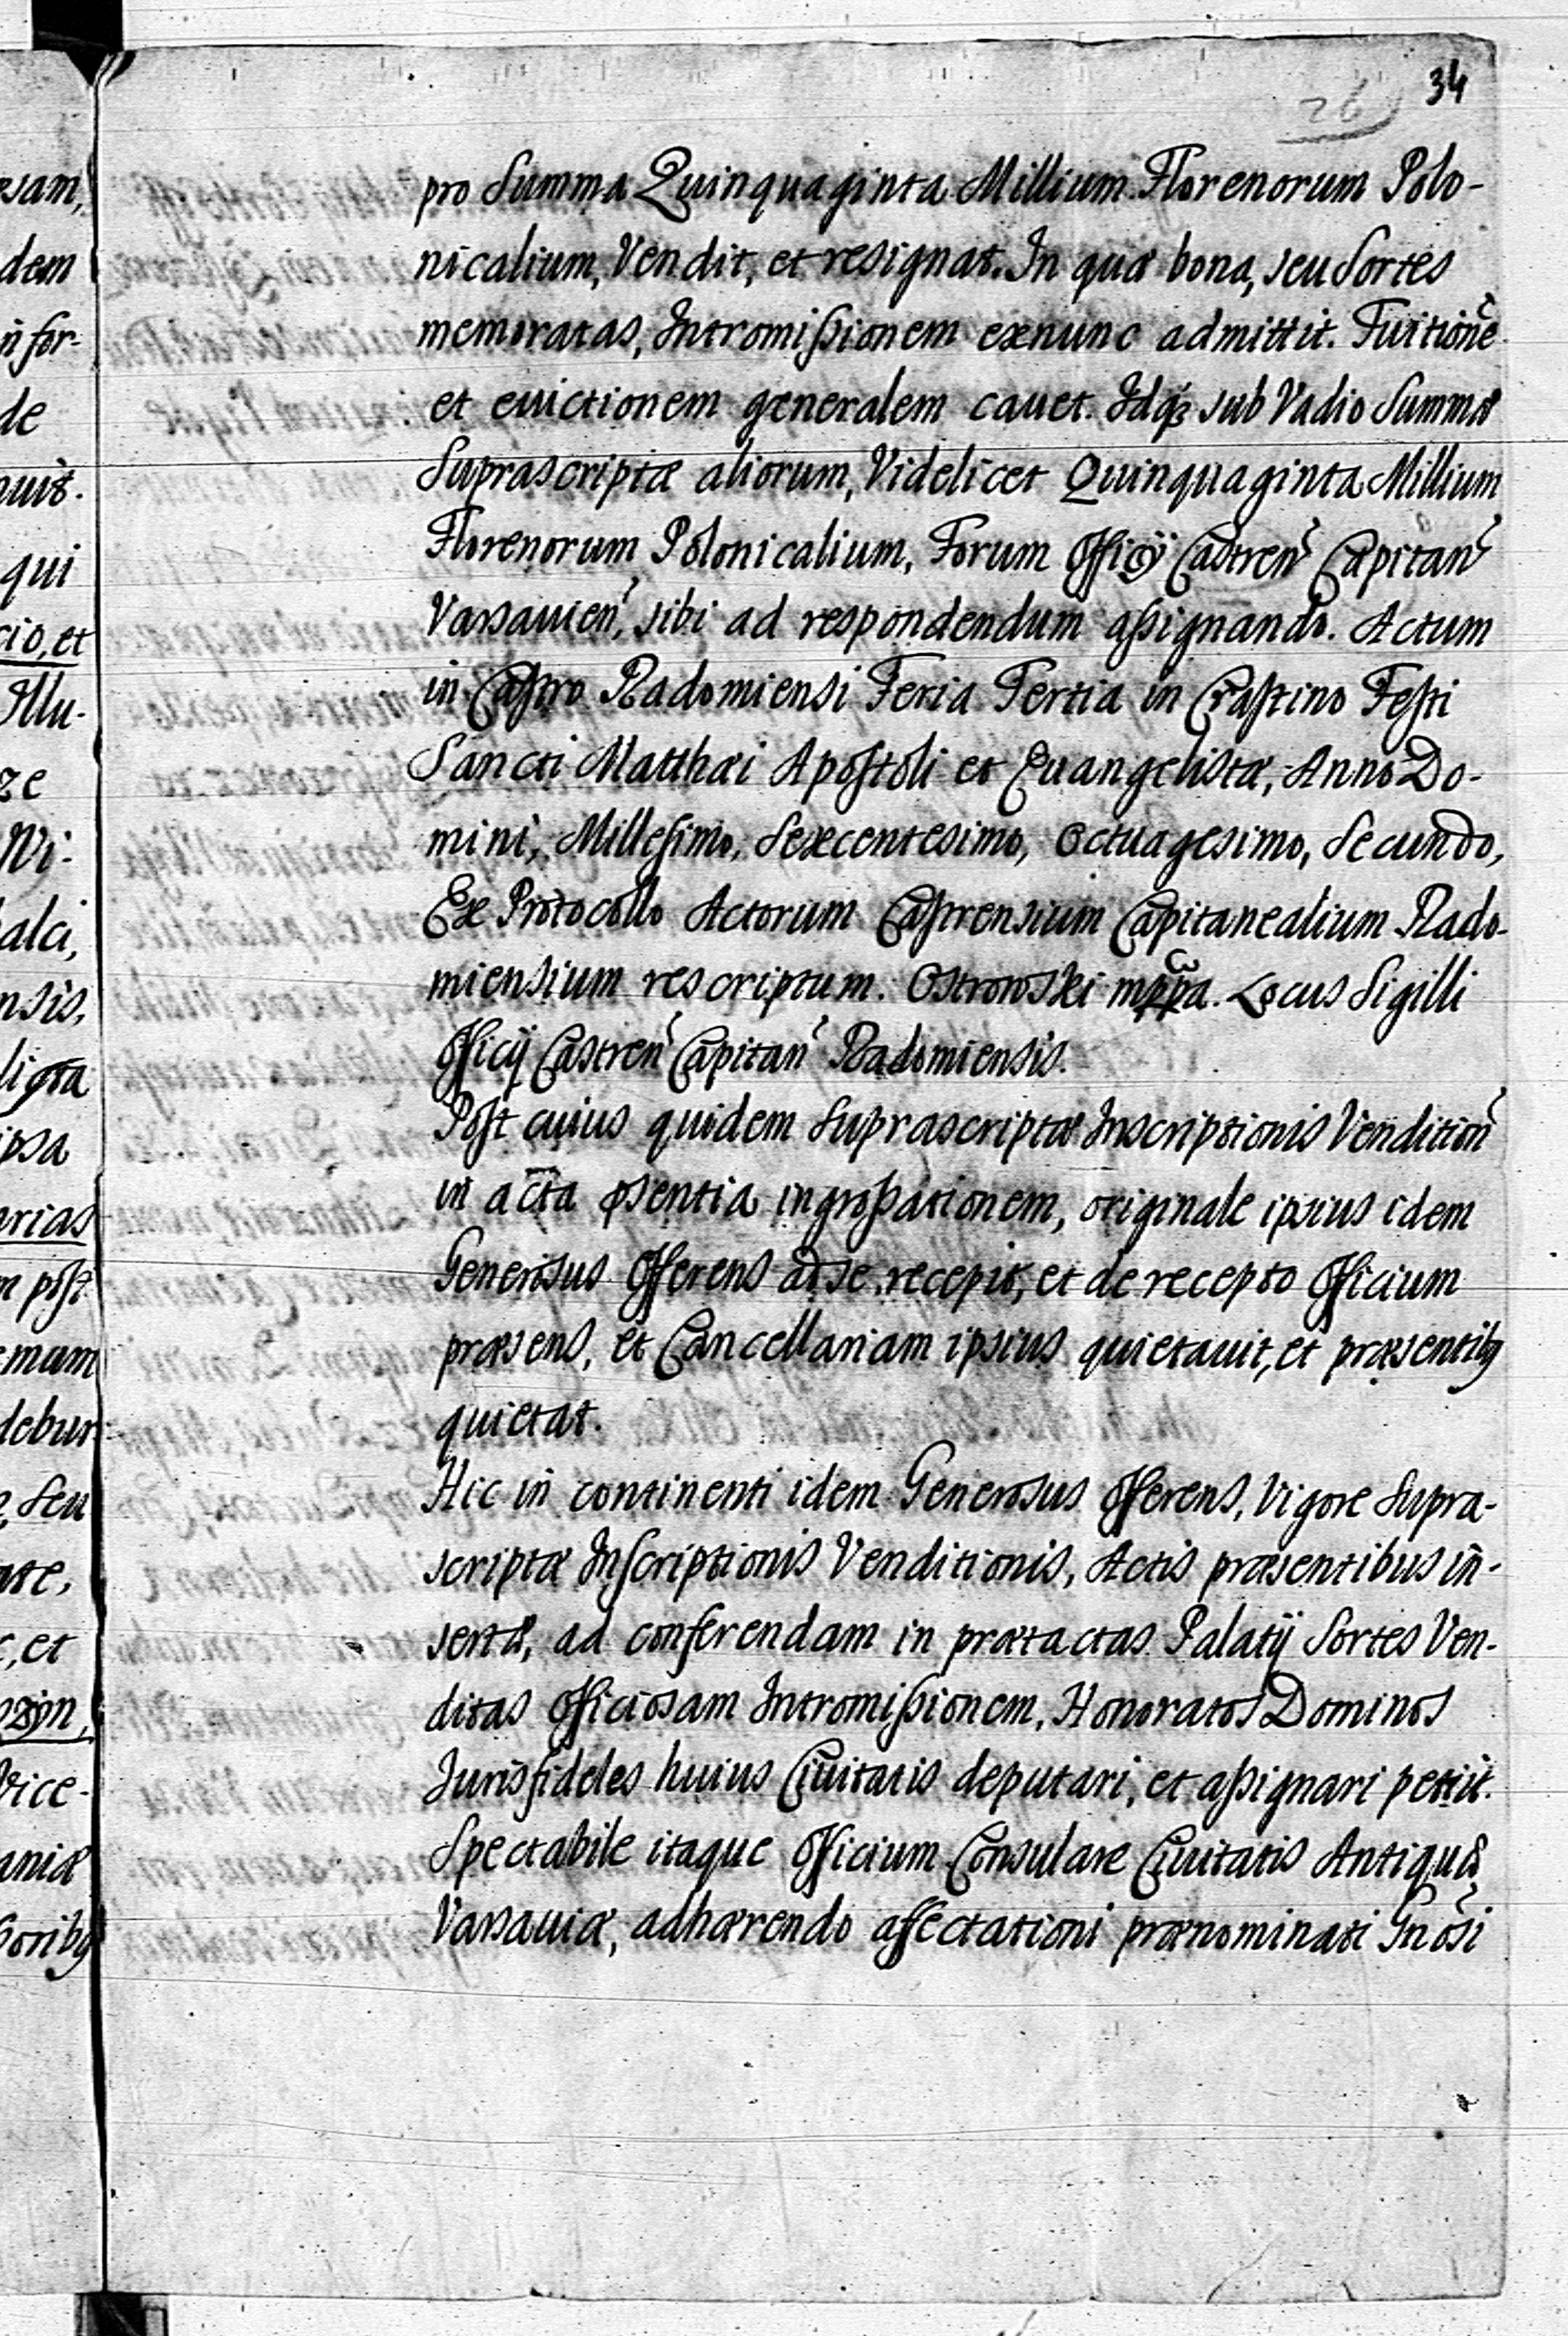 34
26
pro Summa Quinquaginta Millium Florenorum Polo-
nicalium, Vendit, et resignat. In quæ bona, seu Sortes
memoratas, Intromißionem exnunc admittit. Tuitionē
et euictionem generalem cauet. Idq́ꝫ sub Vadio Summæ
Suprascriptæ aliorum, Videlicet Quinquaginta Millium
Florenorum Polonicalium, Forum Officÿ Castren̄ Capitan̄
Varsauien̄, sibi ad respondendum aßignando. Actum
in Castro Radomiensi Feria Tertia in Crastino Festi
Sancti Matthæi Apostoli et Euangelistæ, Anno Do-
mini, Millesimo, Sexcentesimo, Octuagesimo, Secundo,
Ex Protocollo Actorum Castrensium Capitanealium Rado-
miensium rescriptum. Ostrowski mppa. Locus Sigilli
Officij Castren̄ Capitan̄ Radomiensis.
Post cuius quidem Suprascriptæ Inscriptionis Vendition̄
in acta p̄sentia ingroßationem, originale ipsius idem
Generosus Offerens ad se recepit, et de recepto Officium
præsens, et Cancellariam ipsius quietauit, et præsentibꝫ
quietat.
Hic in continenti idem Generosus Offerens, Vigore Supra-
scriptæ Inscriptionis Venditionis, Actis præsentibus in-
sertæ, ad conferendam in prætactas Palatÿ Sortes Ven-
ditas Officiosam Intromißionem, Honoratos Dominos
Jurisfideles huius Ciuitatis deputari, et aßignari petiit.
Spectabile itaque Officium Consulare Ciuitatis Antiquæ
Varsauiæ, adhærendo affectationi prænominati Gn̄osi